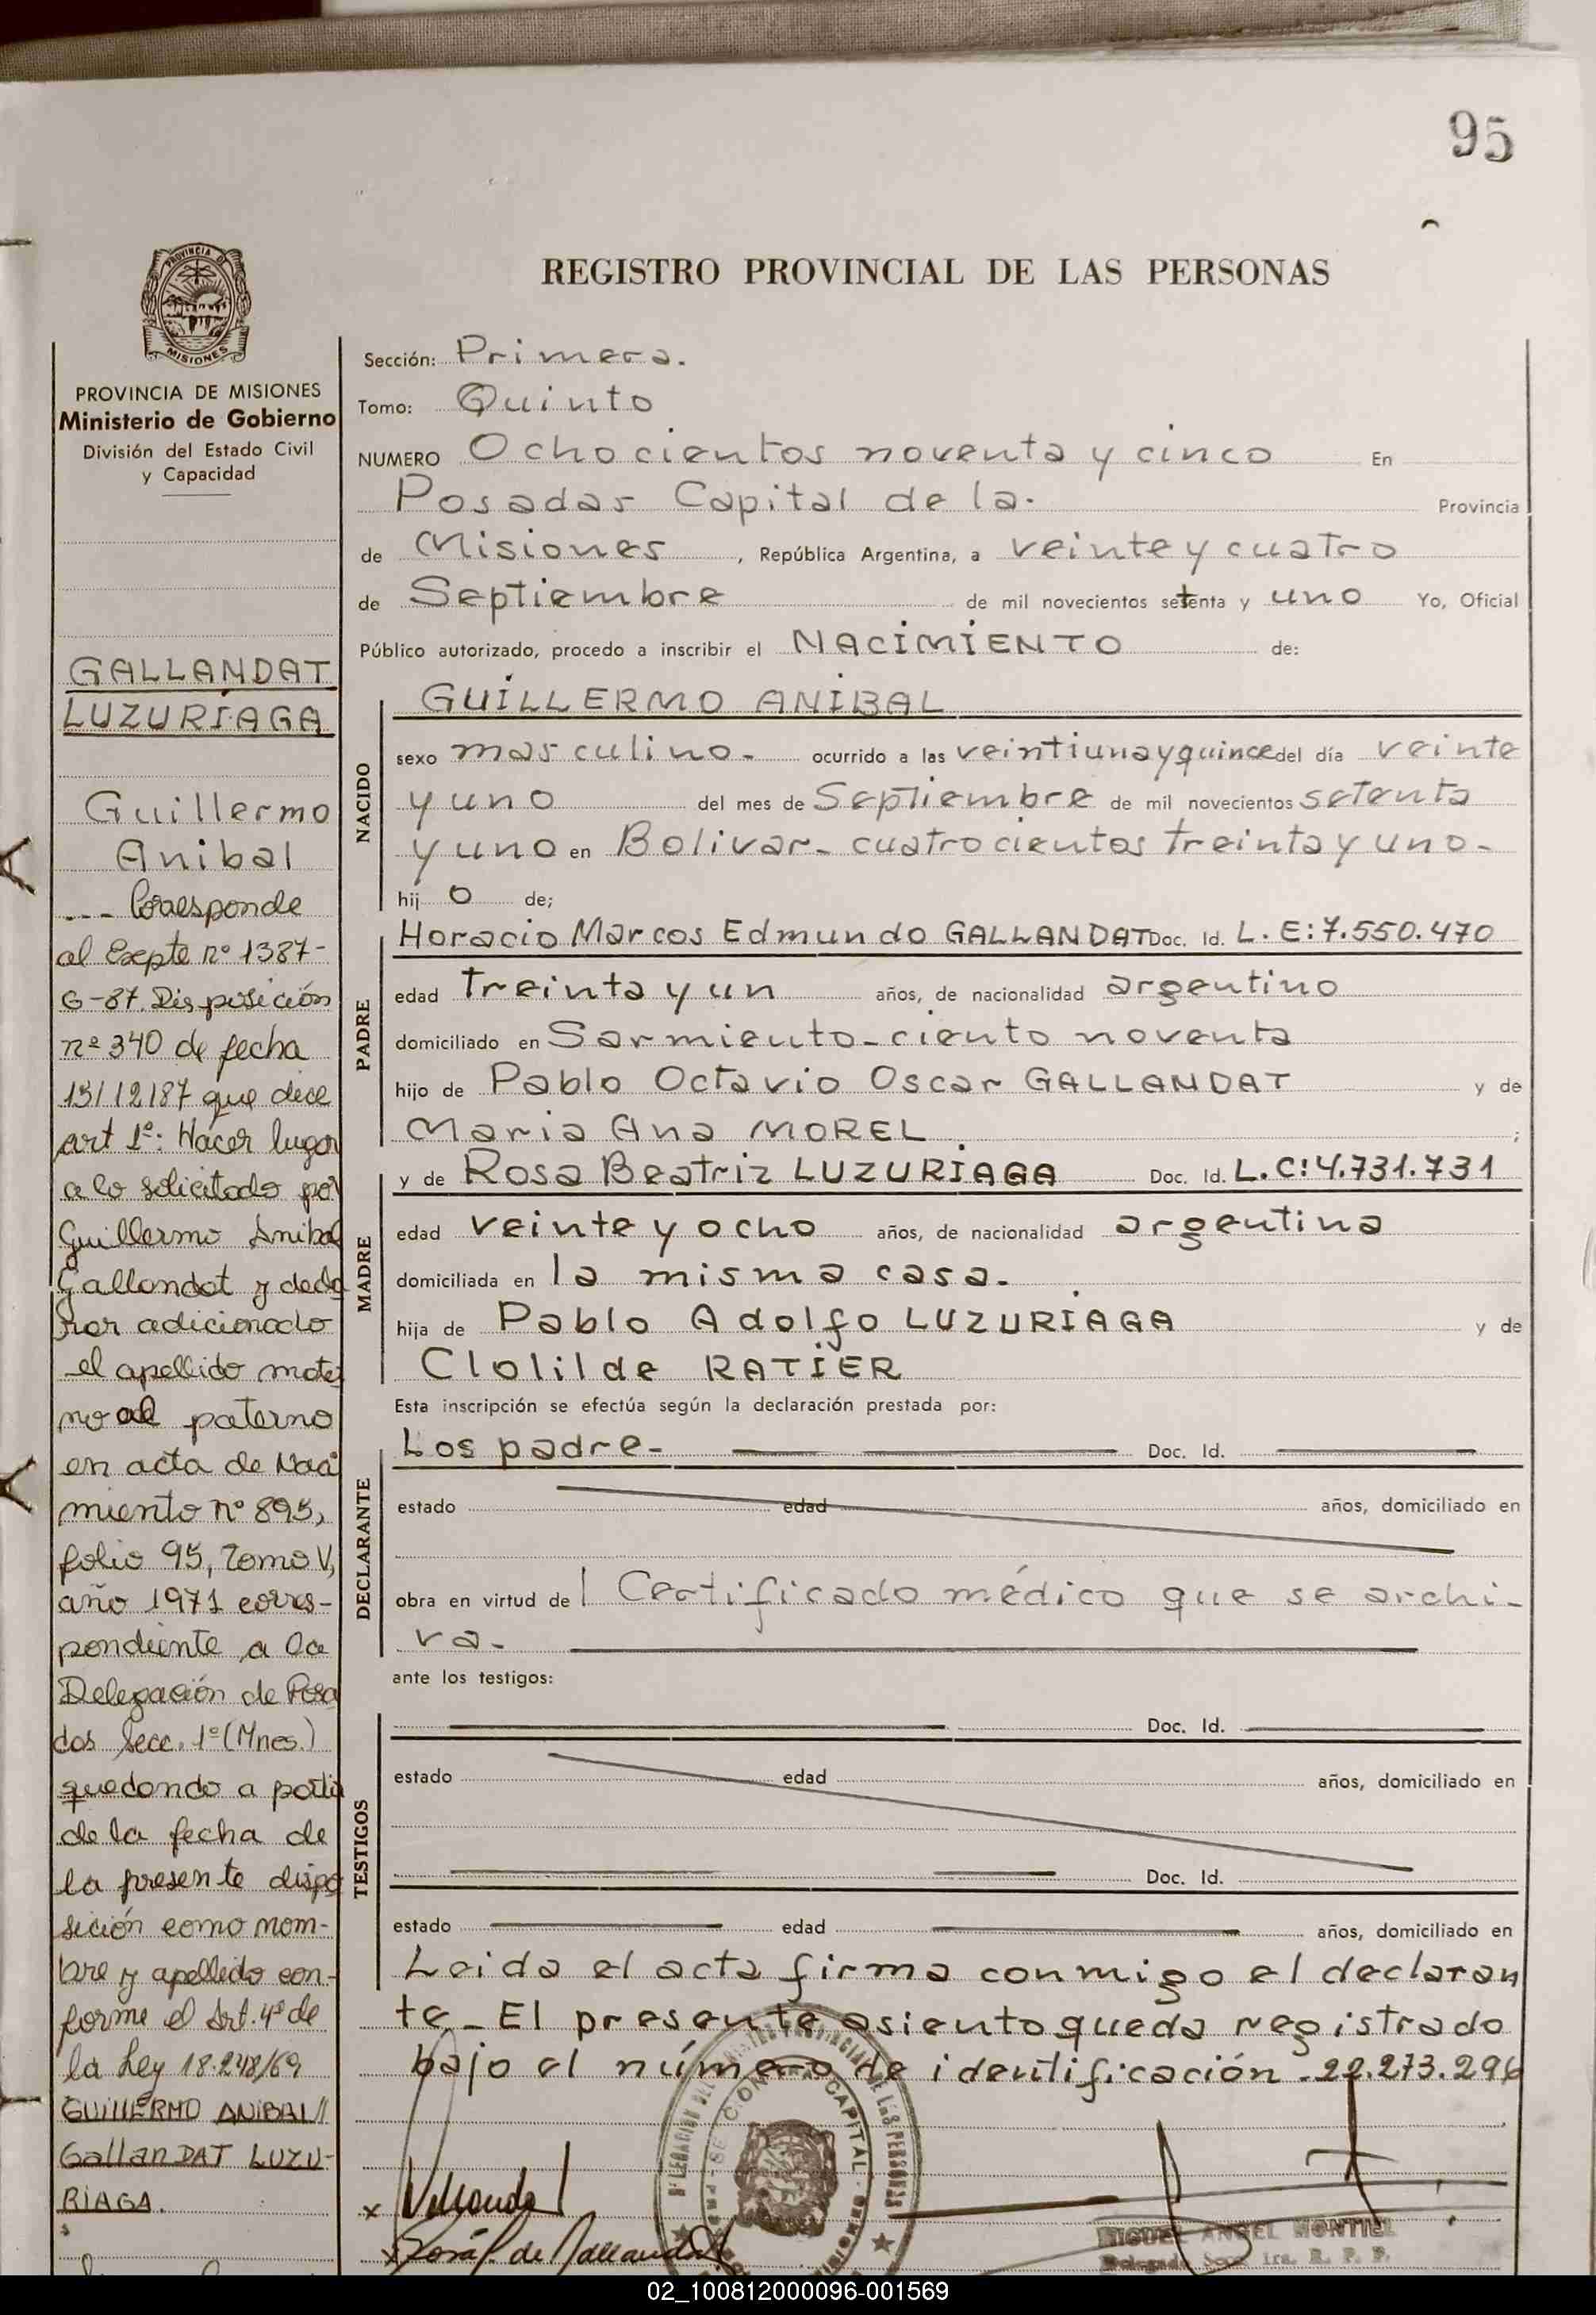 95
PROVINCIA DE
MISIONES
PROVINCIA DE MISIONES
Ministerio de Gobierno
División del Estado Civil
y Capacidad
GALLANDAT
LUZURIAGA
Guillermo
Anibal
--- Corresponde
al Expte nº 1387-
G-87. Disposición
nº 340 de fecha
15/12/87 que dice
art 1º: Hacer lugar
a lo solicitado por
Guillermo Anibal
Gallandat y decla
rar adicionado
el apellido mater
no al paterno
en acta de Naci
miento nº 895,
folio 95, Tomo V,
año 1971 corres-
pondiente a la
Delegación de Posa
das Secc. 1º (Mnes.)
quedando a partir
de la fecha de
la presente dispo
sición como nom-
bre y apellido con-
forme el Art. 4º de
la Ley 18.248/69
GUILLERMO ANIBAL//
GallanDAT LUZU-
RIAGA.
REGISTRO PROVINCIAL DE LAS PERSONAS
Sección: Primera.
Tomo: Quinto
NUMERO Ochocientos noventa y cinco En
Posadas Capital de la. Provincia
de Misiones , República Argentina, a veinte y cuatro
de Septiembre de mil novecientos setenta y uno Yo, Oficial
Público autorizado, procedo a inscribir el NACIMIENTO de:
NACIDO
GUILLERMO ANIBAL
sexo masculino- ocurrido a las veintiuna y quince del día veinte
y uno del mes de Septiembre de mil novecientos setenta
y uno en Bolivar- cuatrocientos treinta y uno-
hij o de;
PADRE
Horacio Marcos Edmundo GALLANDAT Doc. Id. L.E:7.550.470
edad treinta y un años, de nacionalidad argentino
domiciliado en Sarmiento-ciento noventa
hijo de Pablo Octavio Oscar GALLANDAT y de
Maria Ana MOREL ;
MADRE
y de Rosa Beatriz LUZURIAGA Doc. Id. L.C:4.731.731
edad veinte y ocho años, de nacionalidad argentina
domiciliada en la misma casa.
hija de Pablo Adolfo LUZURIAGA y de
Clolilde RATIER
Esta inscripción se efectúa según la declaración prestada por:
DECLARANTE
Los padre- Doc. Id.
estado edad años, domiciliado en
obra en virtud de l Certificado médico que se archi-
va-
ante los testigos:
TESTIGOS
Doc. Id.
estado edad años, domiciliado en
Doc. Id.
estado edad años, domiciliado en
Leida el acta firma conmigo el declaran
te- El presente asiento queda registrado
bajo el número de identificación -22.273.296
x
x Rosa L. de Gallandat
CAPITAL
MIGUEL ANGEL MONTIEL
Delegado Secc. 1ra. R. P. P.
02_100812000096-001569